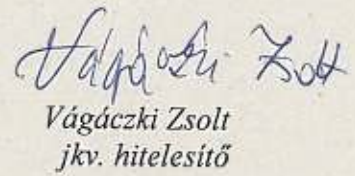 Vágáczki Zsolt
Vágáczki Zsolt
jkv. hitelesítő